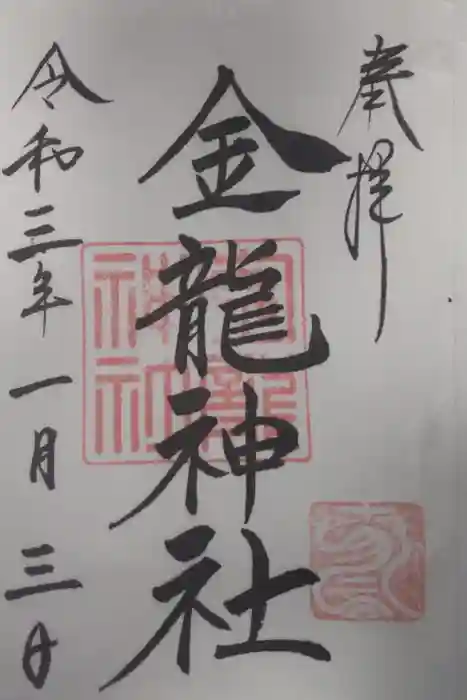 奉拝
金龍神社
令和三年一月三日